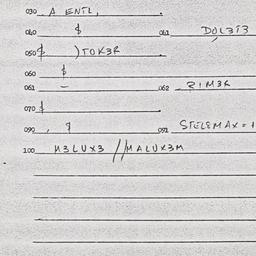 030 A ENTL,
040 $ 041 DOL3I3
050 $ )TOK3R
060 $
061 - 062 RIM3R
070 $
090 , 9 091 STELEMAX = 1
100 M3LUX3 //MALUX3M